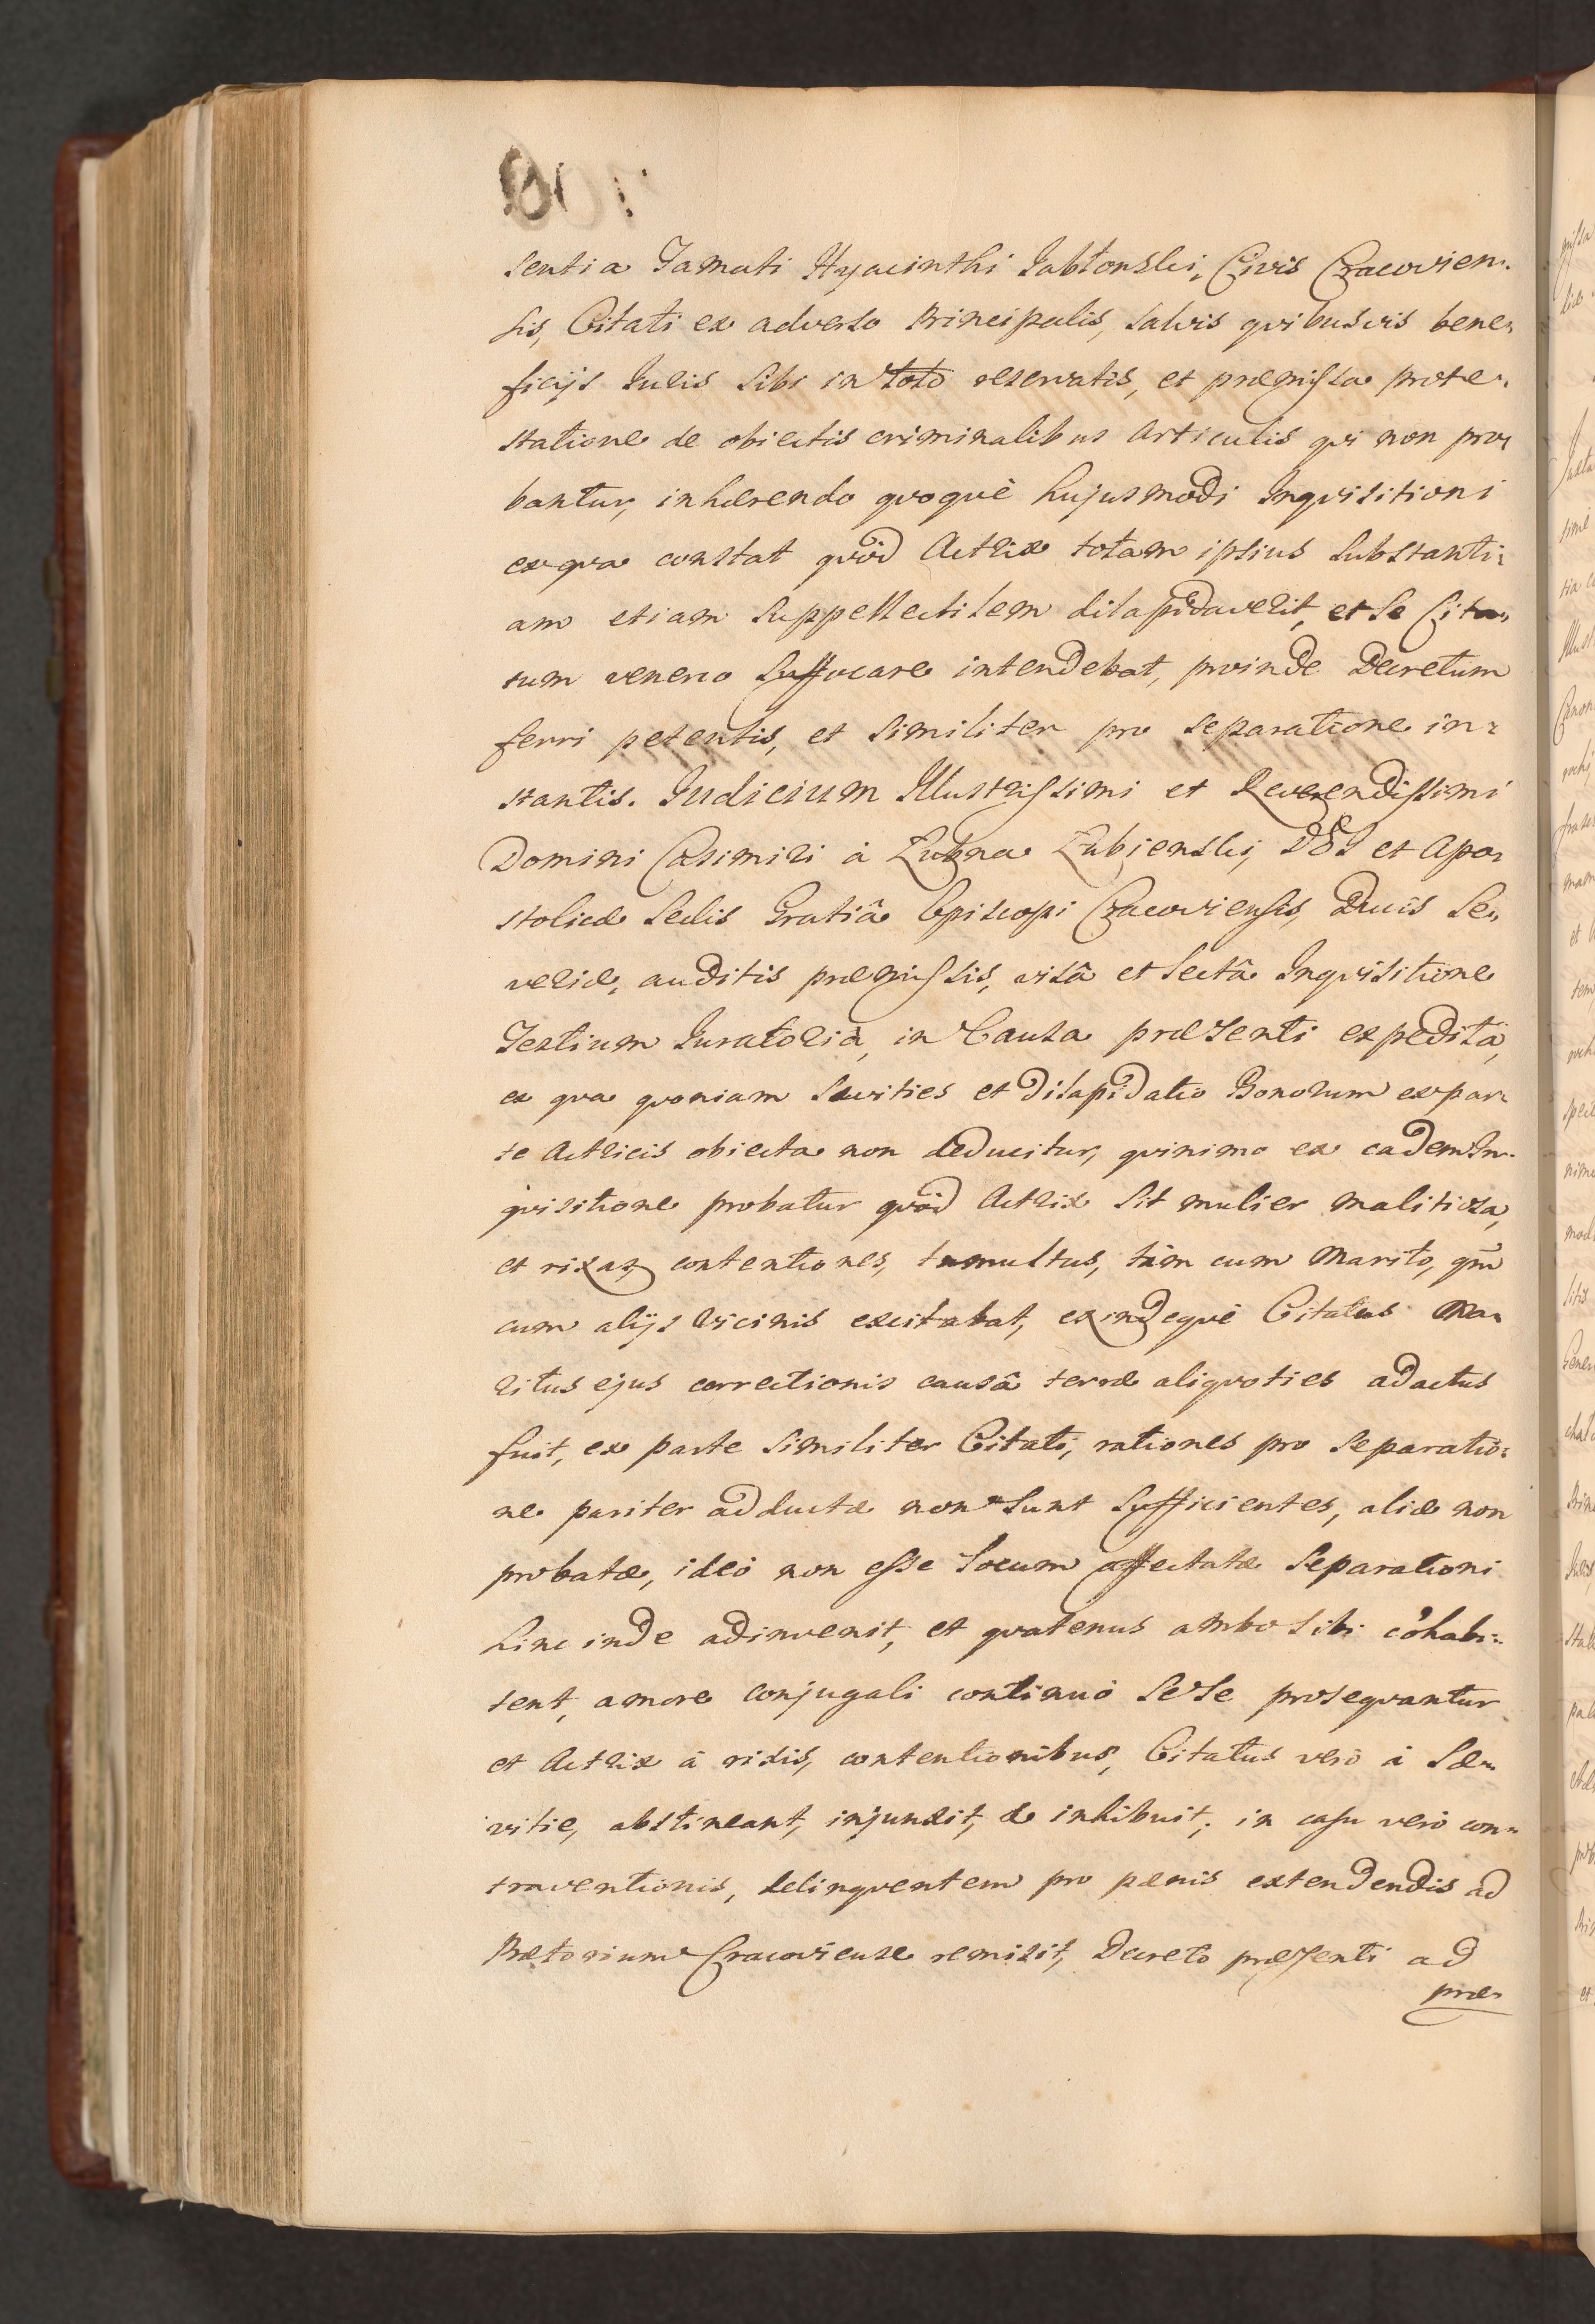 sentia Famati Hyacinthi Jabłonski, Civis Cracovien„
sis, Citati ex adverso Principalis, salvis qvibusvis bene„
ficijs Juris sibi in toto reservatis, et præmissa prote„
statione de obiectis criminalibus Articulis qvi non pro„
bantur, inhærendo qvoqvè hujusmodi Inqvisitioni
ex qva constat qvòd Actrix totam ipsius substanti„
am etiam suppellectilem dilapidaverit, et se Cita„
tum veneno suffocare intendebat, proinde Decretum
ferri petentis, et similiter pro separatione in„
stantis. Judicium Illustrissimi et Reverendissimi
Domini Casimiri à Łubna Łubienski, DEI et Apo„
stolicæ Sedis Gratiâ Episcopi Cracoviensis, Ducis Se„
veriæ, auditis præmissis, visâ et lectâ Inqvisitione
Testium Juratoriâ, in Causa præsenti expeditâ,
ex qva qvoniam sævities et dilapidatio Bonorum ex par„
te Actricis obiecta non deducitur, qvinimo ex eadem In„
qvisitione probatur qvòd Actrix sit mulier malitiosa,
et rixas, contentiones, tumultus, tàm cum Marito, qm̄
cum alijs vicinis excitabat, exindeqvè Citatus Ma„
ritus ejus correctionis causâ ferræ aliqvoties adactus
fuit, ex parte similiter Citati, rationes pro separatio„
ne pariter adductæ non sunt sufficientes, aliæ non
probatæ, ideò non esse locum affectatæ Separationi
hinc inde adinvenit, et qvatenus ambo sibi cohabi„
tent, amore conjugali continuò sese proseqvantur
et Actrix à rixis, contentionibus, Citatus verò à sæ„
vitie, abstineant, injunxit, & inhibuit, in casu verò con„
traventionis, delinqventem pro pænis extendendis ad
Prætorium Cracoviense remisit, Decreto præsenti ad
præ„